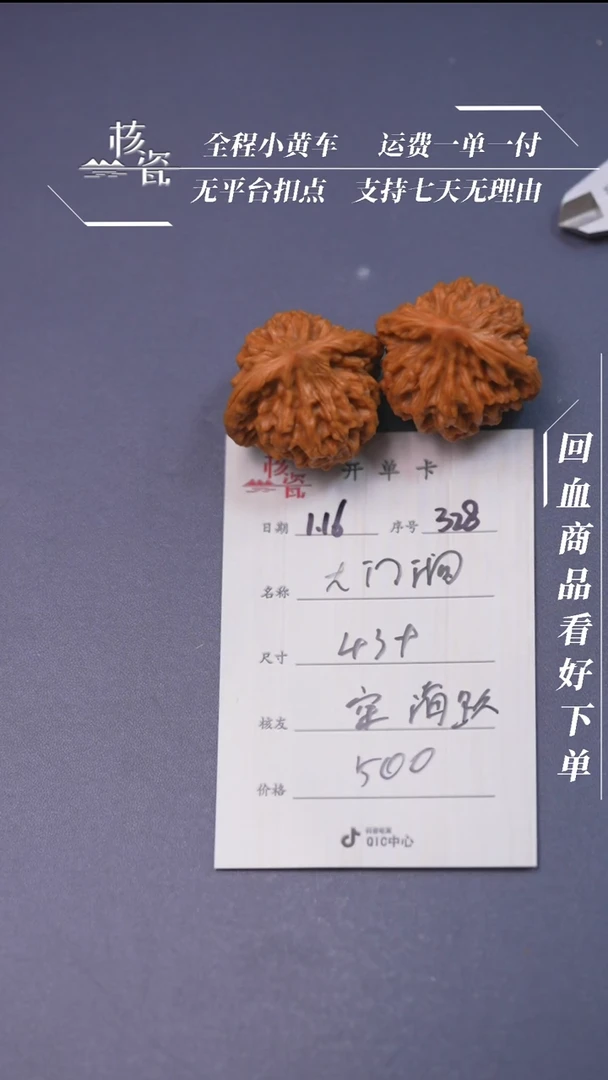 核瓷
全程小黄车 运费一单一付
无平台扣点 支持七天无理由
回血商品看好下单
核瓷 开单卡
日期 1.16 序号 328
名称 大门涧
尺寸 43+
核友
价格 500
抖音电商
QIC中心